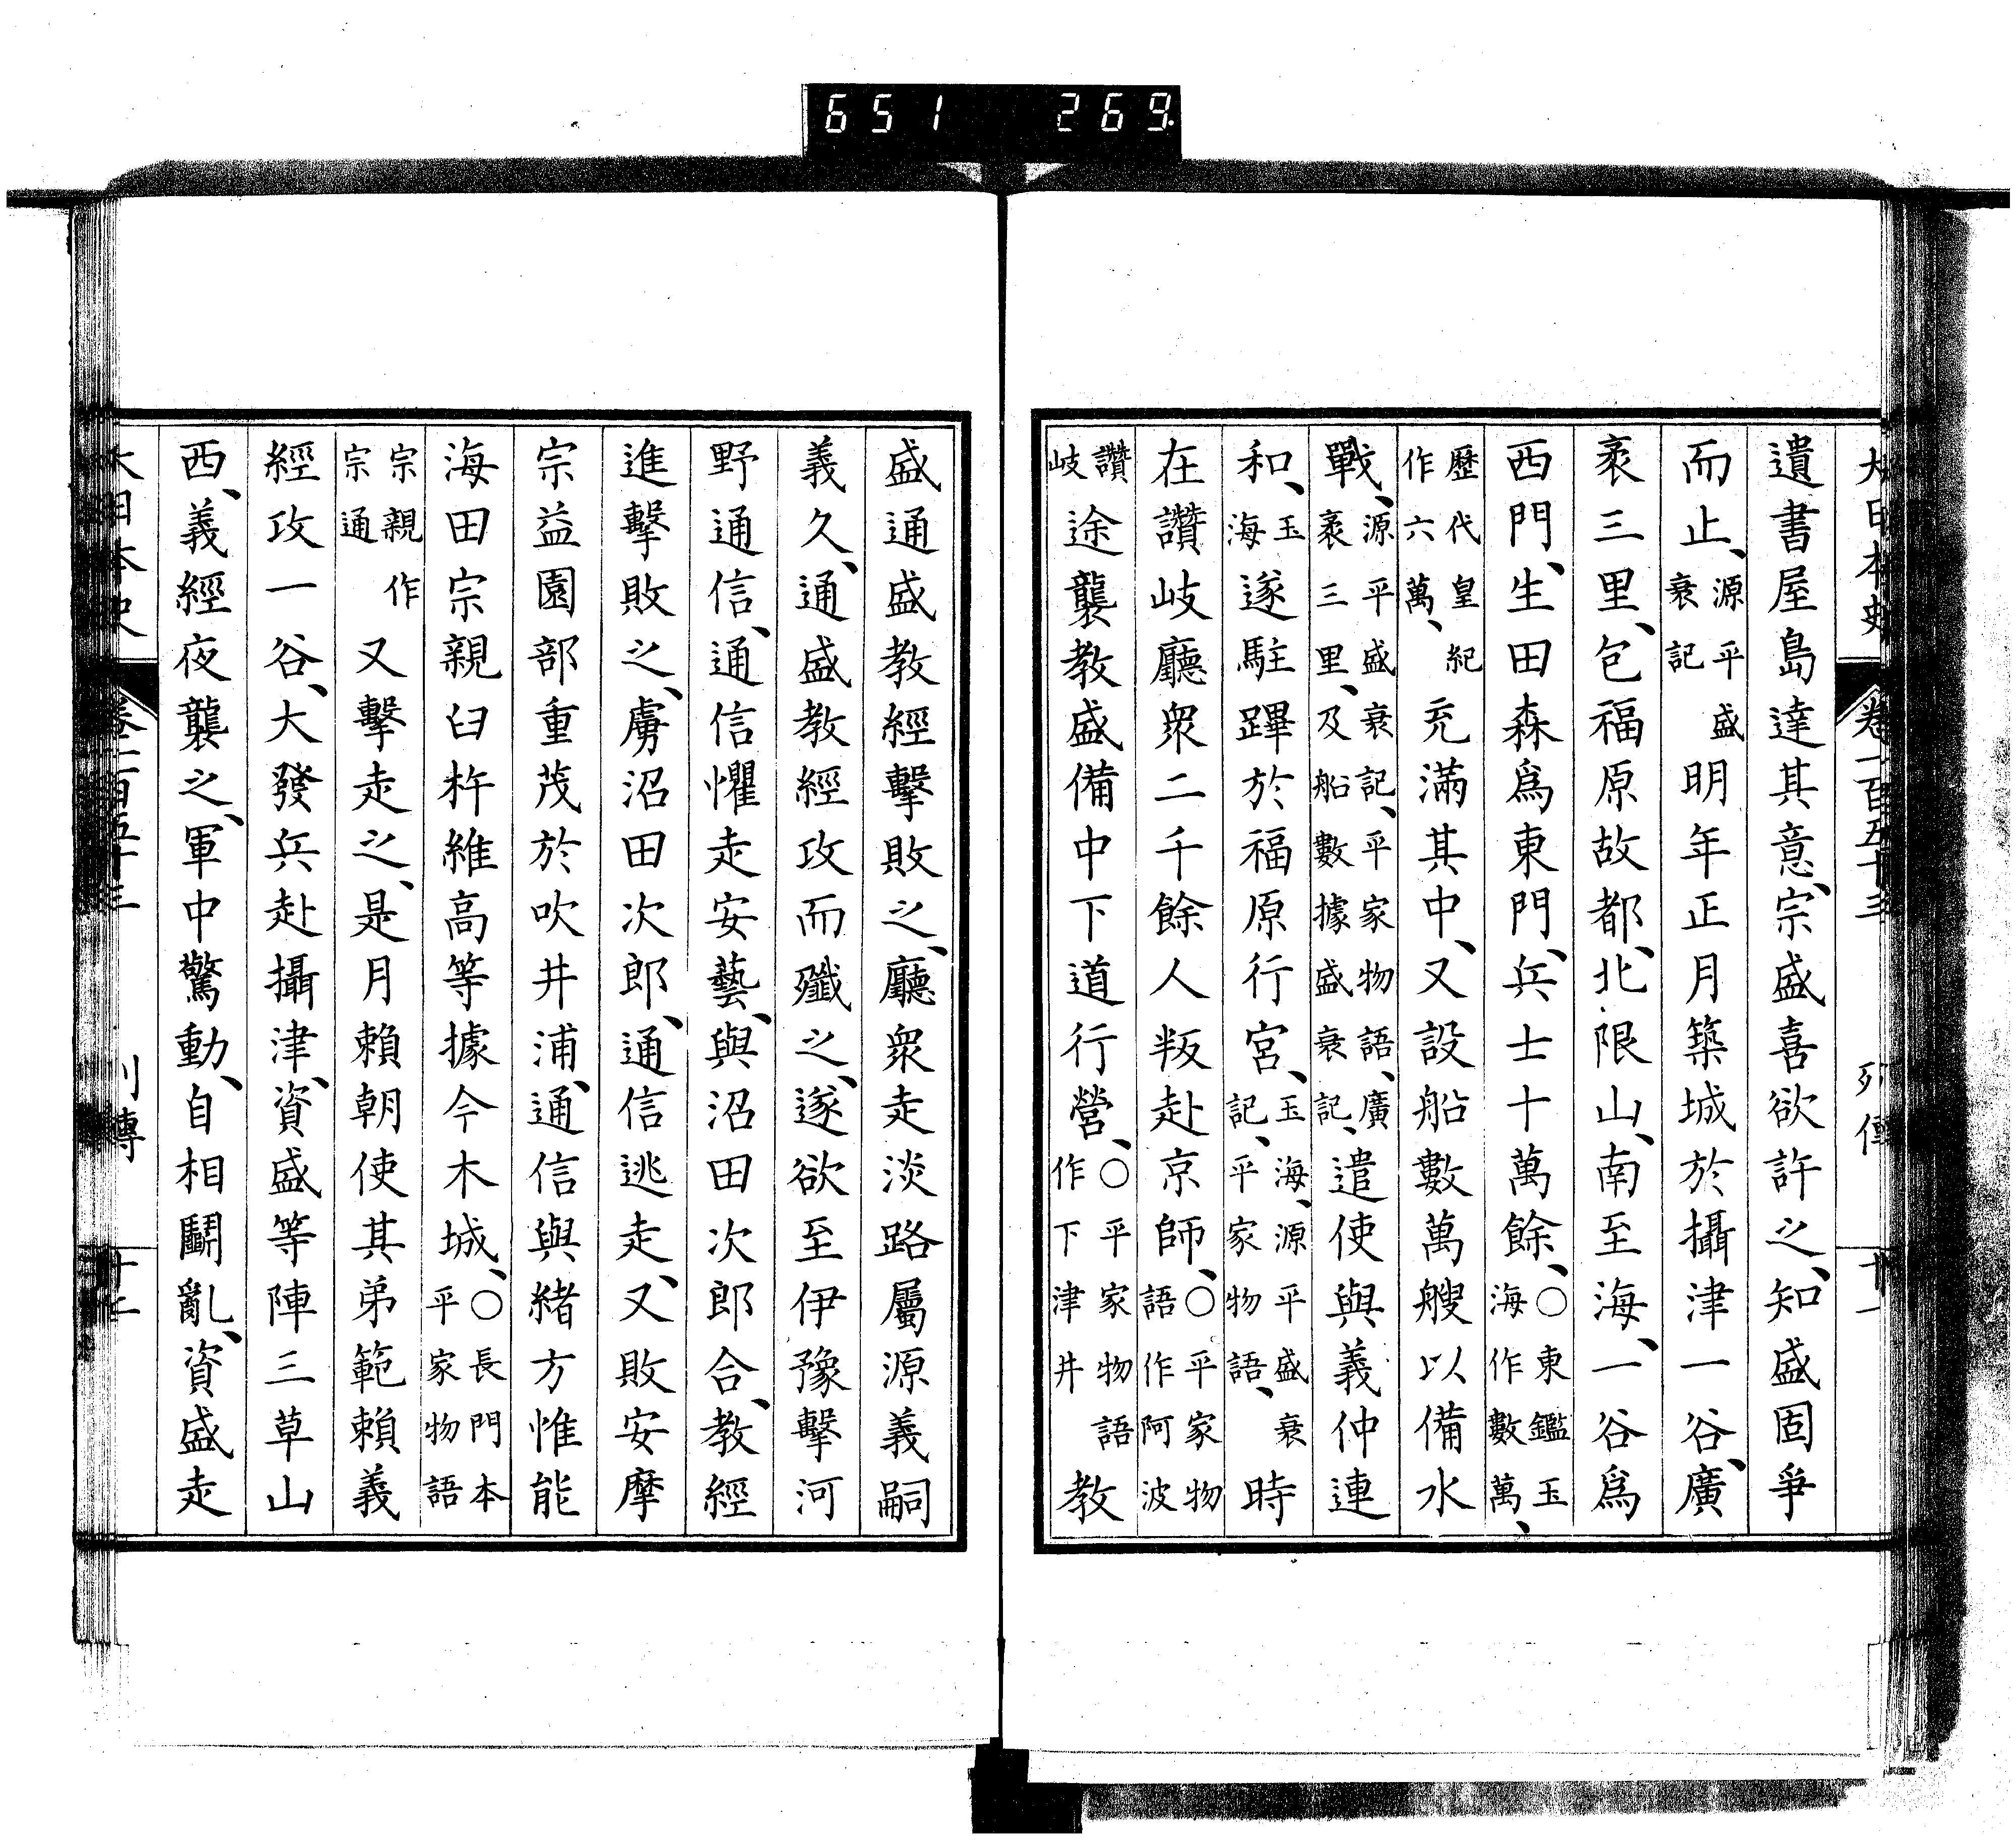 651 269
大日本史 卷一百五十三 列傳 十一
遺書屋島達其意、宗盛喜欲許之、知盛固爭
而止、源平盛衰記明年正月築城於攝津一谷、廣
袤三里、包福原故都、北限山、南至海、一谷爲
西門、生田森爲東門、兵士十萬餘、○東鑑玉海作數萬、
歷代皇紀作六萬、充滿其中、又設船數萬艘以備水
戰、源平盛衰記、平家物語、廣袤三里、及船數據盛衰記、遣使與義仲連
和、玉海遂駐蹕於福原行宮、玉海、源平盛衰記、平家物語、時
在讚岐廳衆二千餘人叛赴京師、○平家物語作阿波
讚岐途襲教盛備中下道行營、○平家物語作下津井教
盛通盛教經擊敗之、廳衆走淡路屬源義嗣
義久、通盛教經攻而殲之、遂欲至伊豫擊河
野通信、通信懼走安藝、與沼田次郎合、教經
進擊敗之、虜沼田次郎、通信逃走、又敗安摩
宗益園部重茂於吹井浦、通信與緒方惟能
海田宗親臼杵維高等據今木城、○長門本平家物語
宗親作宗通又擊走之、是月賴朝使其弟範賴義
經攻一谷、大發兵赴攝津、資盛等陣三草山
西、義經夜襲之、軍中驚動、自相鬬亂、資盛走
大日本史 卷一百五十三 列傳 十二